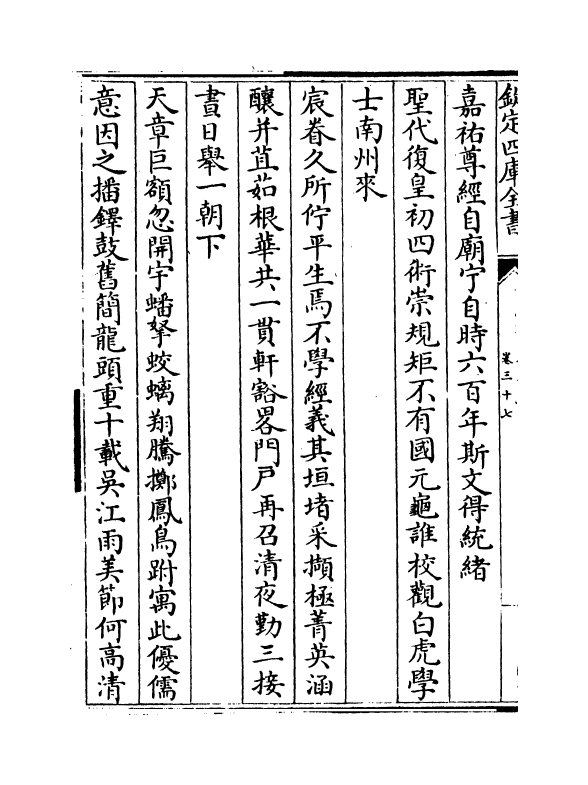 欽定四庫全書
卷三十七
嘉祐尊經自廟宁自時六百年斯文得統緒
聖代復皇初四術崇規矩不有國元龜誰校觀白虎學
士南州來
宸眷久所佇平生焉不學經義其垣堵采擷極菁英涵
釀并苴茹根華共一貫軒豁畧門戶再召清夜勤三接
晝日舉一朝下
天章巨額忽開宇蟠拏蛟螭翔騰擲鳳鳥跗寓此優儒
意因之播鐸鼓舊簡龍頭重十載吳江雨美節何高清